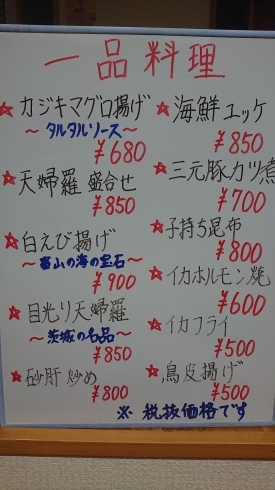 一品料理
カジキマグロ揚げ
～タルタルソース～
¥680
天婦羅 盛合せ
¥850
白えび揚げ
～富山の海の宝石～
¥900
目光り天婦羅
～茨城の名品～
¥850
砂肝 炒め
¥800
海鮮ユッケ
¥850
三元豚カツ煮
¥700
子持ち昆布
¥800
イカホルモン焼
¥600
イカフライ
¥500
鳥皮揚げ
¥500
※ 税抜価格です